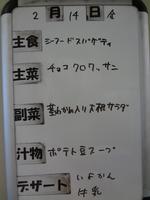 2月14日金
主食 シーフードスパゲティ
主菜 チョコクロワッサン
副菜 茎わかめ入り大根サラダ
汁物 ポテト豆スープ
デザート いよかん
牛乳